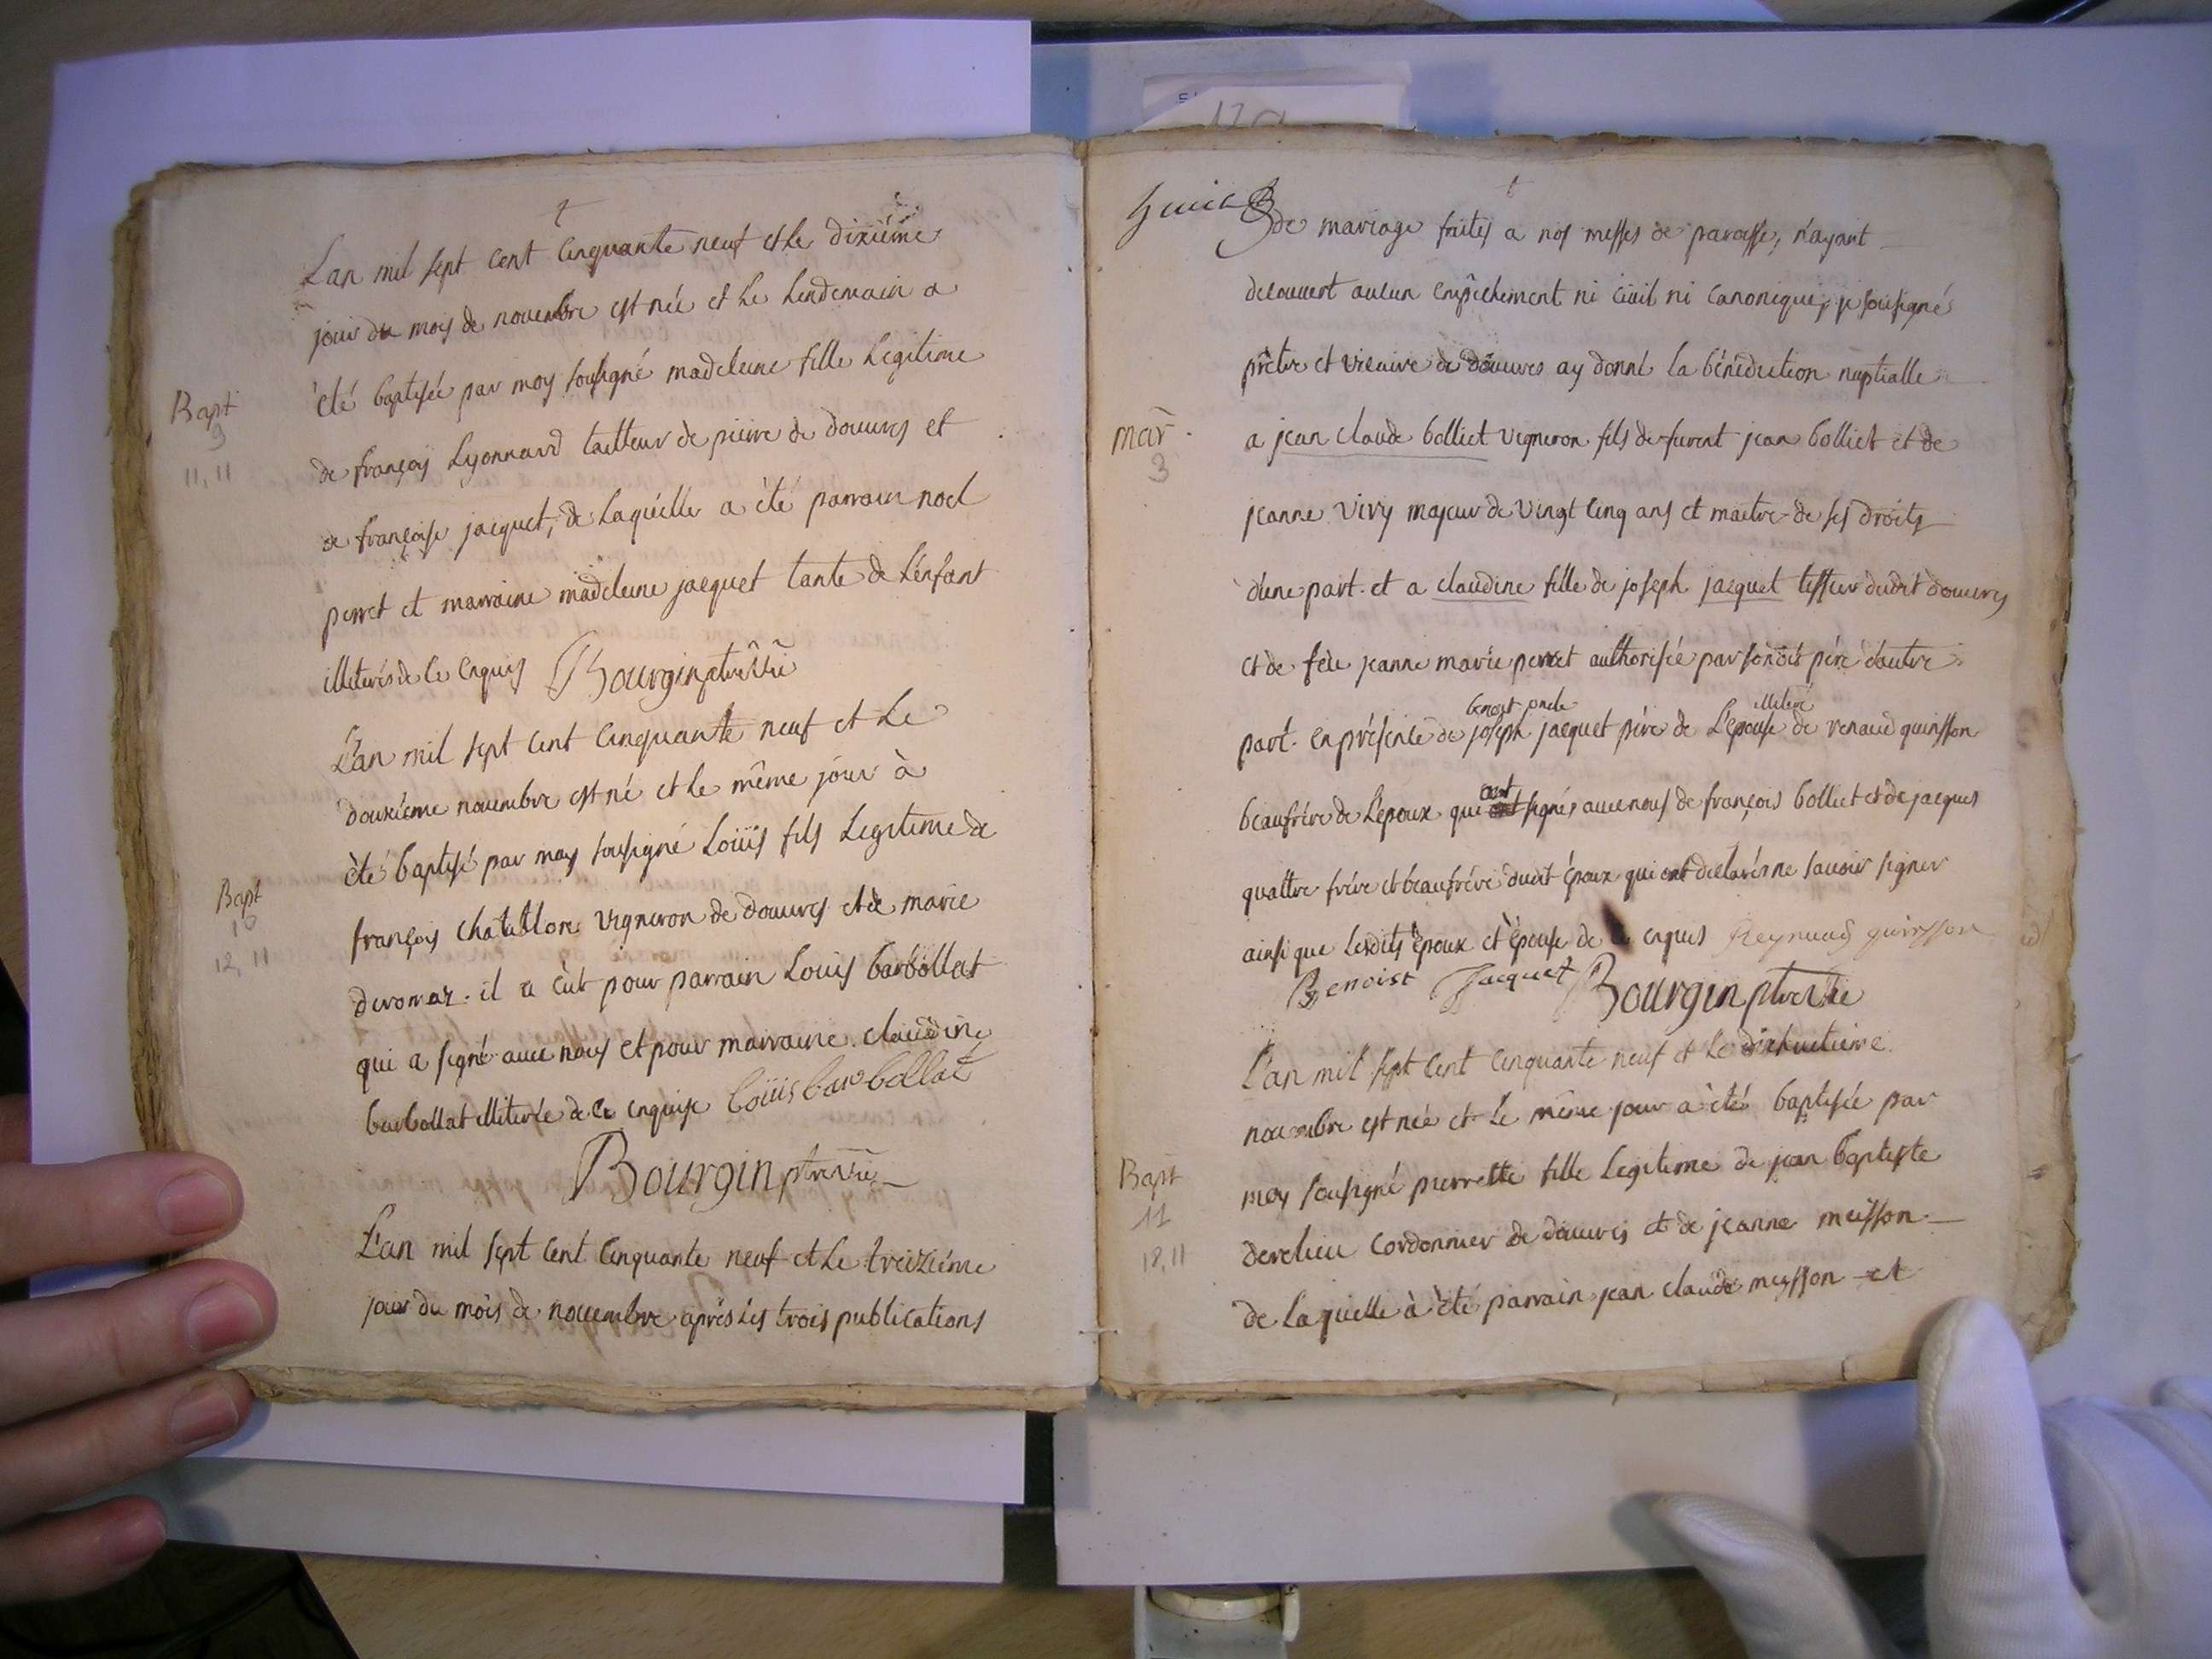 L'an mil sept cent cinquante neuf et le dixiéme
jour du mois de novembre est née et le lendemain a
été baptisée par moy sousigné madeleine fille legitime
Bapt
9
11, 11
de françois Lyonnard tailleur de pierre de douvres et
de françoise jacquet, de laquélle a été parrain noel
perret et marraine madeleine jacquet tante de l'énfant
illiterés de ce enquis Bourgin ptre vic
L'an mil sept cent cinquante neuf et le
douxiéme novembre est né et le même jour à
été baptisé par moy sousigné Loüis fils legitime de
Bapt
10
12, 11
françois chatillon vigneron de douvres et de marie
deromaz. il a eüt pour parrain Louis barbollat
qui a signé avec nous et pour marraine claudine
barbollat illiterée de ce enquise loüis barbollat
Bourgin ptre vic
L'an mil sept cent cinquante neuf et le treiziéme
jour du mois de novembre aprés les trois publications
17
de mariage faites a nos messes de paroisse, n'ayant
decouvert aucun empêchement ni civil ni canonique, je sousigné
prêtre et vicaire de douvres ay donné la bénédiction nuptialle
mar
3
a jean claude bolliet vigneron fils de furent jean bolliet et de
jeanne vivy majeur de vingt cinq ans et maitre de ses droits
d'une part. et a claudine fille de joseph jacquet tissier dudit douvres
et de feüe jeanne marie perret authorisée par sondit pére d'autre
part. en présence de joseph jacquet pére de l'épouse de renaud quinsson
benoit oncle illiteré
beaufrére de l'époux qui ont signés avec nous de françois bolliet et de jacques
quattre frére et beaufrére dudit époux qui ont declarés ne savoir signer
ainsi que lesdits époux et épouse de ce enquis Reynaud quinsson
Benoist Jacquet Bourgin ptre vic
L'an mil sept cent cinquante neuf et le dixhuitiéme
novembre est née et le même jour a été baptisée par
moy sousigné pierrette fille legitime de jean baptiste
Bapt
11
18, 11
derelieu cordonnier de douvres et de jeanne meisson
de laquelle à été parrain jean claude meysson et